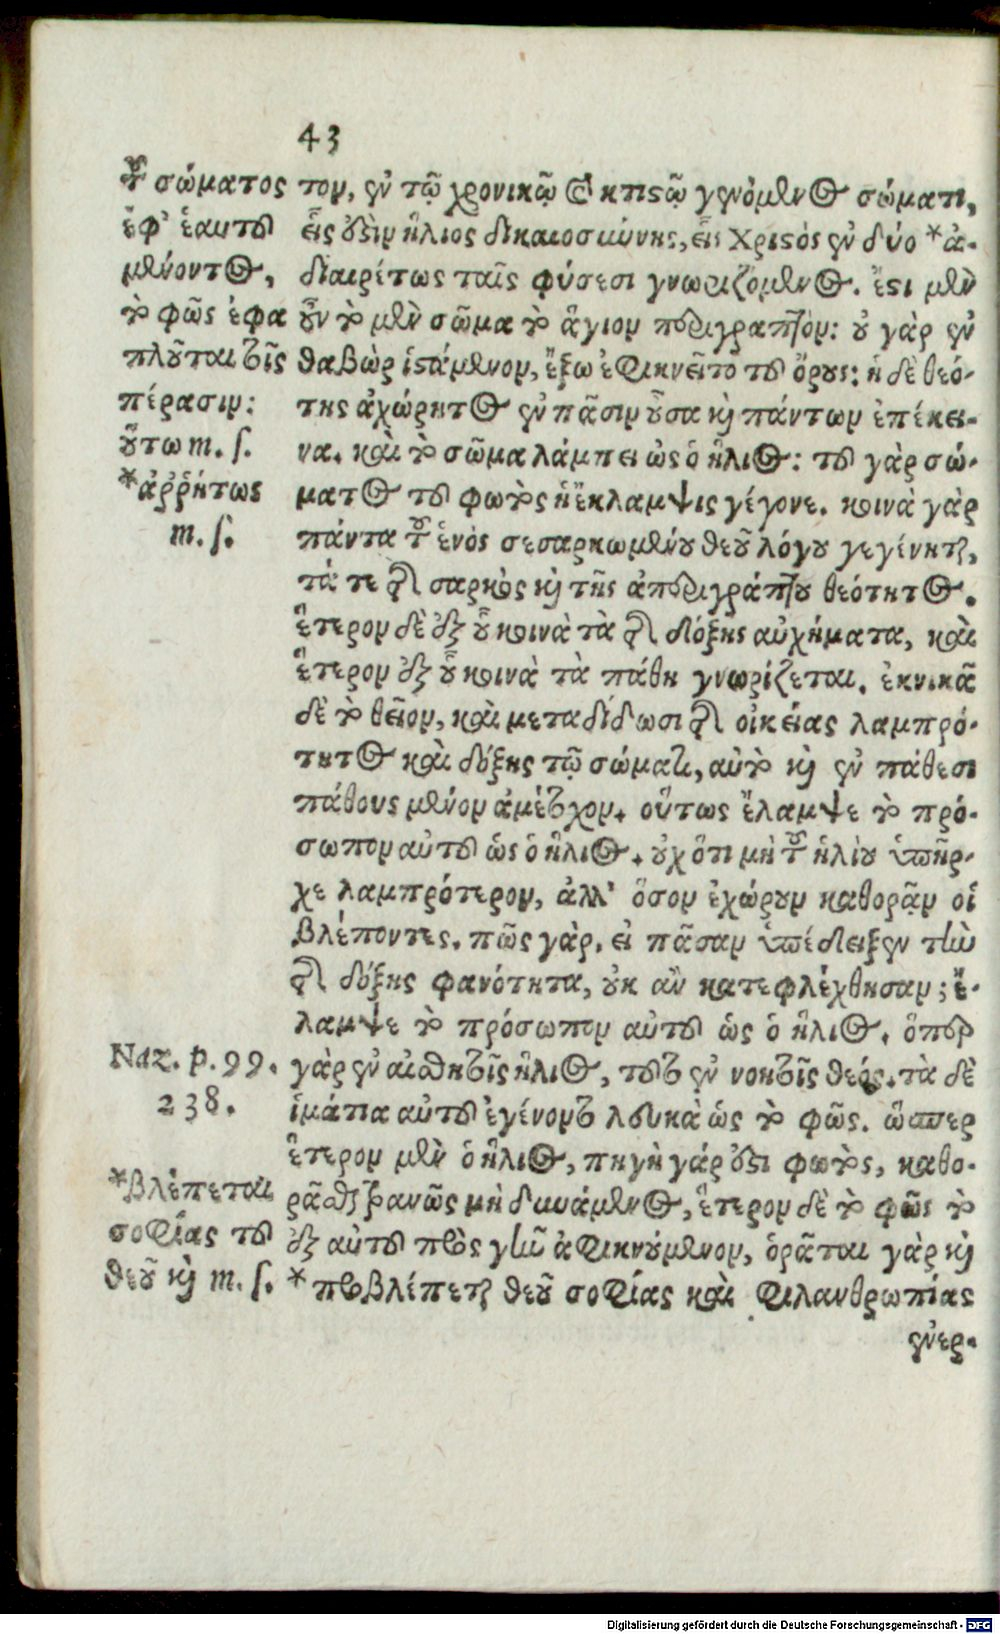 43
τοῦ σώματος
ἐφ᾽ ἑαυτοῦ
μένοντος,
τὸ φῶς ἐφα
πλοῦται τοῖς
πέρασιν:
οὕτω m. ſ.
*ἀῤῥήτως
m. ſ.
τον, ἐν τῷ χρονικῷ καὶ κτιστῷ γενόμενος σώματι,
εἷς ἐστὶν ἥλιος δικαιοσύνης, εἷς χριστὸς ἐν δύο *ἀ-
διαιρέτως ταῖς φύσεσι γνωριζόμενος. ἔστι μὲν
οὖν τὸ μὲν σῶμα τὸ ἅγιον περιγραπτόν: οὐ γὰρ ἐν
θαβὼρ ἱστάμενον, ἔξω ἐφικνεῖτο τοῦ ὄρους: ἡ δὲ θεό-
της ἀχώρητος ἐν πᾶσιν οὖσα καὶ πάντων ἐπέκει-
να. καὶ τὸ σῶμα λάμπει ὡς ὁ ἥλιος: τοῦ γὰρ σώ-
ματος τοῦ φωτὸς ἡ ἔκλαμψις γέγονε. κοινὰ γὰρ
πάντα τοῦ ἑνὸς σεσαρκωμένου θεοῦ λόγου γεγένηται,
τά τε τῆς σαρκὸς καὶ τῆς ἀπεριγράπτου θεότητος.
ἕτερον δὲ ἐξ οὗ κοινὰ τὰ τῆς δόξης αὐχήματα, καὶ
ἕτερον ἐξ οὗ κοινὰ τὰ πάθη γνωρίζεται. ἐκνικᾶ
δὲ τὸ θεῖον, καὶ μεταδίδωσι τῆς οἰκείας λαμπρό-
τητος καὶ δόξης τῷ σώματι, αὐτὸ καὶ ἐν πάθεσι
πάθους μένον ἀμέτοχον. οὕτως ἔλαμψε τὸ πρό-
σωπον αὐτοῦ ὡς ὁ ἥλιος. οὐχ ὅτι μὴ τοῦ ἡλίου ὑπῆρ-
χε λαμπρότερον, ἀλλ᾽ ὅσον ἐχώρουν καθορᾷν οἱ
βλέποντες. πῶς γὰρ, εἰ πᾶσαν ὑπέδειξεν τὴν
τῆς δόξης φανότητα, οὐκ ἂν κατεφλέχθησαν; ἔ-
λαμψε τὸ πρόσωπον αὐτοῦ ὡς ὁ ἥλιος. ὅπερ
Naz. p. 99.
238.
γὰρ ἐν αἰσθητοῖς ἥλιος, τοῦτο ἐν νοητοῖς θεός. τὰ δὲ
ἱμάτια αὐτοῦ ἐγένοντο λευκὰ ὡς τὸ φῶς. ὥσπερ
ἕτερον μὲν ὁ ἥλιος, πηγὴ γάρ ἐστι φωτὸς, καθο-
*βλέπεται
σοφίας τοῦ
θεοῦ καὶ m. ſ.
ρᾶσθαι τρανῶς μὴ δυνάμενος, ἕτερον δὲ τὸ φῶς τὸ
ἐξ αὐτοῦ πρὸς γῆν ἀφικνούμενον, ὁρᾶται γὰρ καὶ
*προβλέπεται θεοῦ σοφίας καὶ φιλανθρωπίας
ἐνερ-
Digitalisierung gefördert durch die Deutsche Forschungsgemeinschaft - DFG